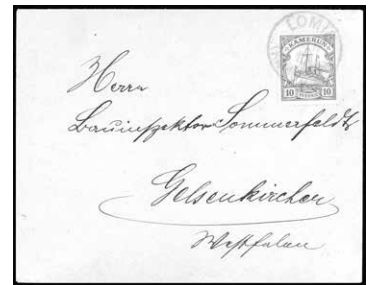 LOME
KAMERUN
10 10
Herrn
Bauinspektor Sommerfeldt
Gelsenkirchen
Westfalen